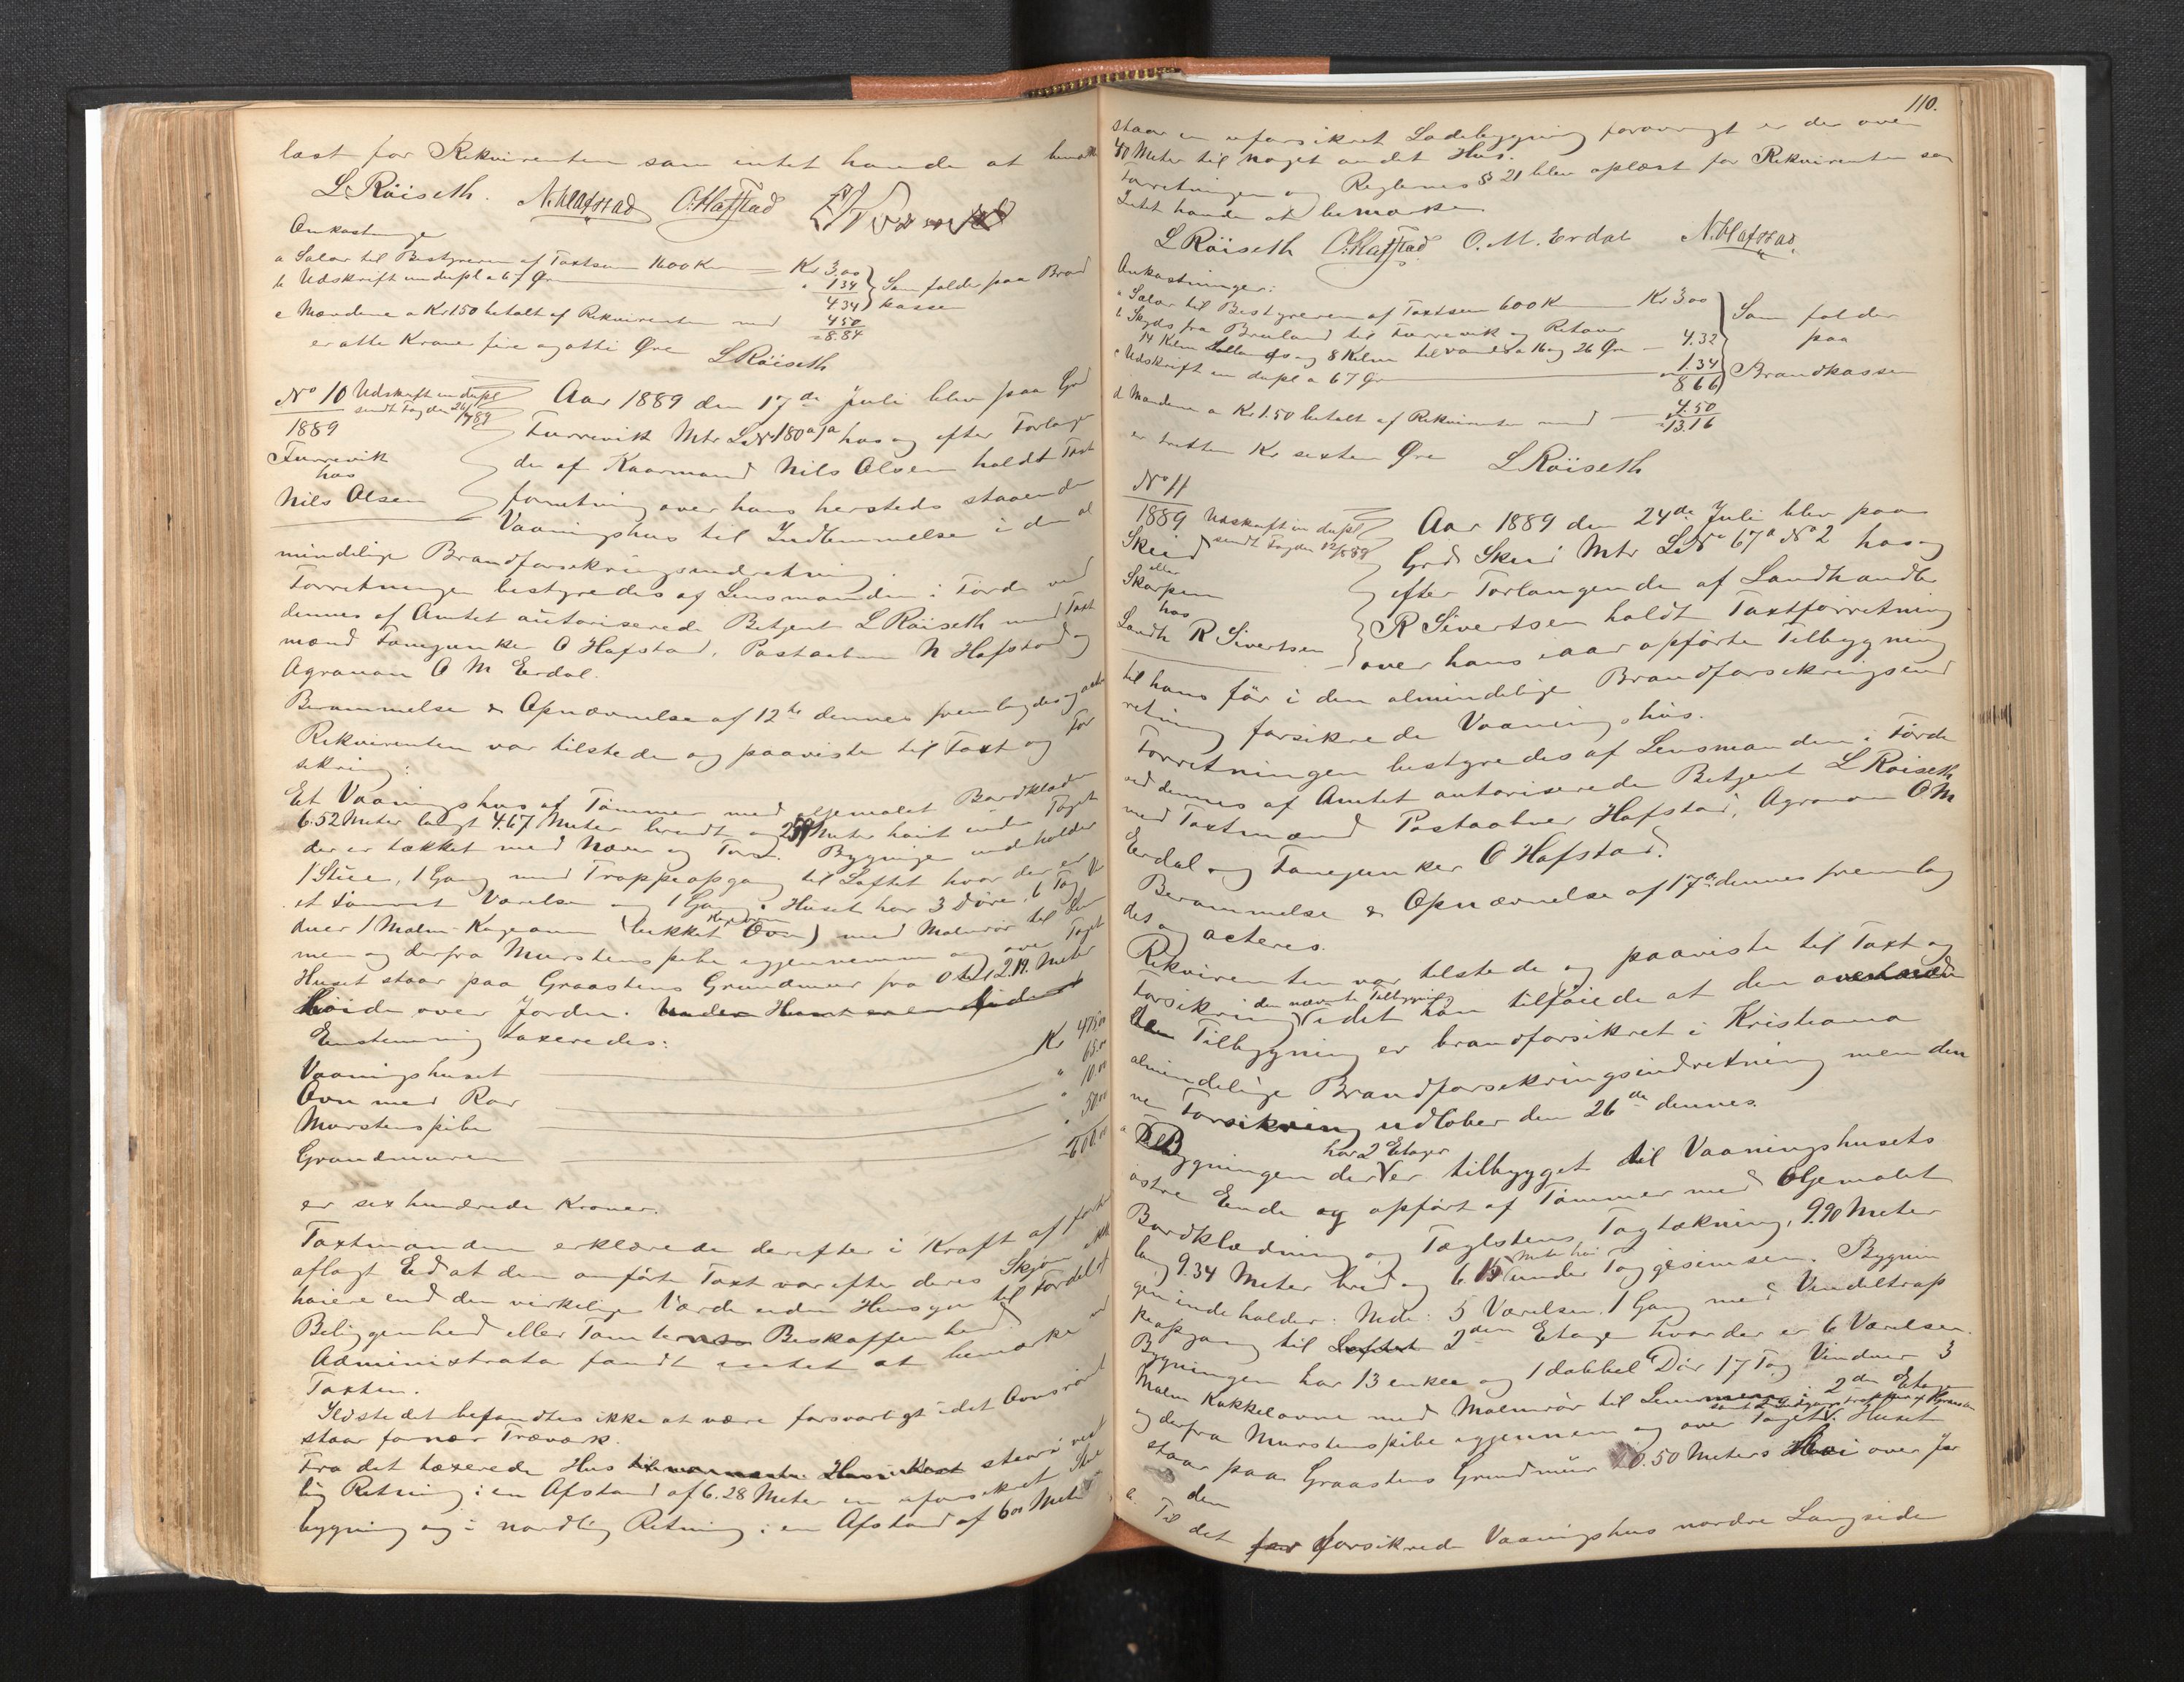 læst for Rekvirenten som intet havde at bemærke
L. Röiseth. N. Hafstad O. Hafstad
Omkostninger
a Salær til Bestyreren af Taxtsum 1600 Kr — Kr 3.00
b Udskrift in dupl a 67 Øre — " 1.34 } Som falder paa Brand
4.34 kassen
c Mændene a Kr 1.50 betalt af Rekvirenten med 4.50
= 8.84
er otte Kroner fire og otti Øre L Röiseth
No 10 Udskrift in dupl
sendt Fogden 26/7 89
1889
Furrevik
hos
Nils Olsen
Aar 1889 den 17de Juli blev paa Grd
Furrevik Mtr L No 180 a 1a hos og efter Forlangen
de af Kaarmand Nils Olsen holdt Taxt
forretning over hans hersteds staaende
Vaaningshus til Indlemmelse i den al
mindelige Brandforsikringsindretning.
Forretningen bestyredes af Lensmanden i Förde ved
dennes af Amtet autoriserede Betjent L Röiseth med Taxt
mænd Fanejunker O Hafstad, Postaabner N Hafstad og
Agronom O M Erdal.
Berammelse & Opnævnelse af 12te dennes fremlagdes og
Rekvirenten var tilstede og paaviste til Taxt og For
sikring:
Et Vaaningshus af Tömmer med oljemalet Bordklædn
6.52 Meter langt 4.67 Meter bredt og Meter höit under Taget
der er tækket med Næver og Torv. Bygningen indeholder
1 Stue, 1 Gang med Trappeopgang til Loftet hvor der er
et tömret Værelse og 1 Gang. Huset har 3 Döre, 6 Fag Vin
duer 1 Malm Kogeovn (lukket Ovn) med Malmrör til Lem
men og derfra Murstenspibe igjennem og over Taget
Huset staar paa Graastens Grundmur fra 0 til 2.19. Meter
Höide over Jorden. Under Huset er en
Enstemmig taxeredes:
Vaaningshuset — Kr 475.00
Ovn med Rör — " 65.00
Murstenspibe — " 10.00
Grundmuren — " 50.00
= 600.00
er sex hundrede Kroner.
Taxtmændene erklærede derefter i Kraft af forhen
aflagt Ed at den anförte Taxt var efter deres Skjön ikke
höiere end den virkelige Værdi uden Hensyn til Fordel af
Beliggenhed eller Tomtens Beskaffenhed.
Administrator fandt intet at bemærke ved
Taxten.
Ildstedet befandtes ikke at være forsvarligt idet Ovnsröret
staar for nær Træværk.
Fra det taxerede Hus staar i vest
lig Retning i en Afstand af 6.28 Meter en uforsikret
bygning og i nordlig Retning i en Afstand af 6.00 Meter
110.
staar en uforsikret Ladebygning forövrigt er der over
40 Meter til noget andet Hus.
Forretningen og Reglernes § 21 blev oplæst for Rekvirenten som
Intet havde at bemærke
L Röiseth O. Hafstad O. M. Erdal N. Hafstad.
Omkostninger:
a Salær til Bestyreren af Taxtsum 600 Kr — Kr 3.00
b Skyds fra Bruland til Furrevik og Retour
14 Kilm tillands og 8 Kilm tilvands a 16 og 26 Øre — 4.32
c Udskrift in dupl a 67 Øre — " 1.34
8.66
} Som falder paa Brandkassen
d Mændene a Kr 1.50 betalt af Rekvirenten med — 4.50
= 13.16
er tretten Kr sexten Øre L Röiseth
No 11
1889 Udskrift in dupl
sendt Fogden 12/8 89
Skeid
eller
Skorpen
hos
Landh R Sivertsen
Aar 1889 den 24de Juli blev paa
Grd Skei Mtr L No 67a No 2 hos og
efter Forlangende af Landhandler
R Sivertsen holdt Taxtforretning
over hans iaar opförte Tilbygning
til hans för i den almindelige Brandforsikringsind
retning forsikrede Vaaningshus.
Forretningen bestyredes af Lensmanden i Förde
ved dennes af Amtet autoriserede Betjent L Röiseth
med Taxtmænd Postaabner Hafstad, Agronom O M
Erdal og Fanejunker O Hafstad.
Berammelse & Opnævnelse af 17de dennes fremlag
des og acteres.
Rekvirenten var tilstede og paaviste til Taxt og
Forsikring den nævnte Tilbygning idet han tilföiede at den
Tilbygning er brandforsikret i Kristiania
almindelige Brandforsikringsindretning men den
ne Forsikring udlöber den 26de dennes.
a Bygningen der har 2 Etager er tilbygget til Vaaningshusets
östre Ende og opfört af Tömmer med Oljemalet
Bordklædning og Taglstens Tagtækning, 9.90 Meter
lang 9.34 Meter bred og 6.15 Meter höi under Taggesimsen. Bygnin
gen indeholder: Nede: 5 Værelser, 1 Gang med Vindeltrap
peopgang til Loftet 2den Etage hvor der er 6 Værelser.
Bygningen har 13 enkee og 1 dobbel Dör 17 Fag Vinduer 3
Malm Kakkelovne med Malmrör til Lemmen i 2den Etage
og derfra Murstenspibe igjennem og over Taget. Huset
staar paa Graastens Grundmur 0.50 Meters Höi over Jor
den
b. Til det för forsikrede Vaaningshus nordre Langside